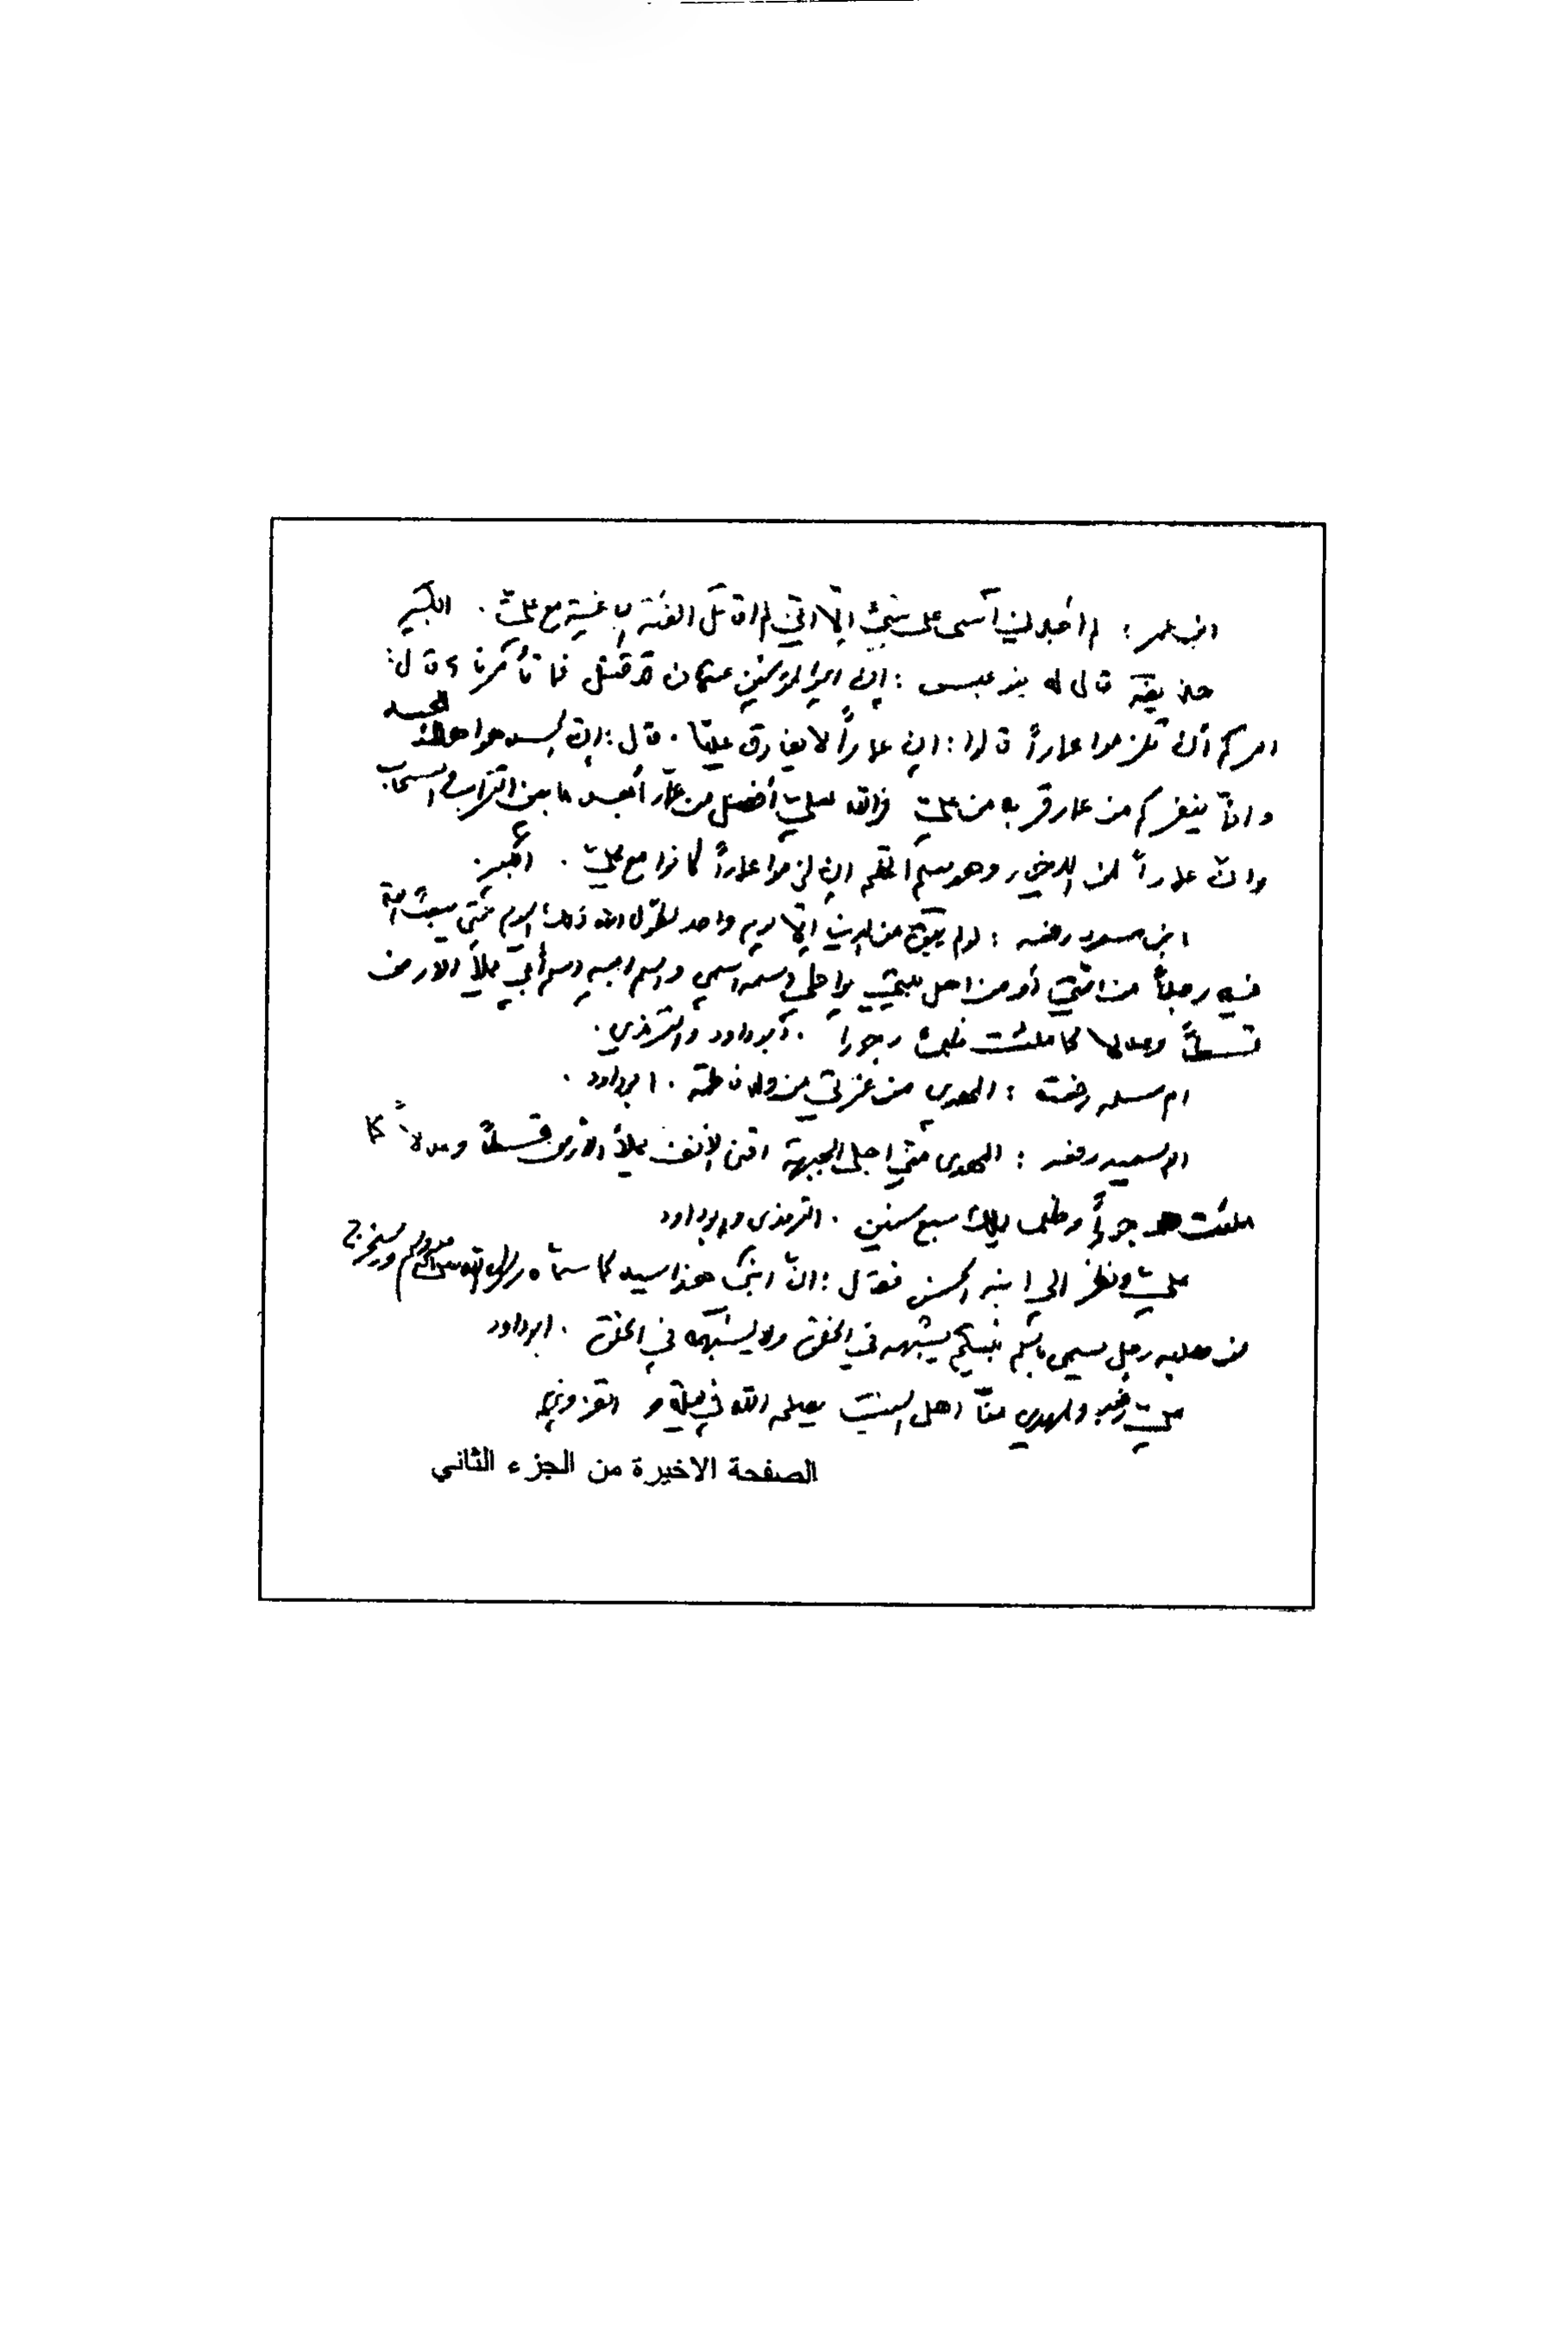 ابن عمر : لم أجدني آسى على شيء إلا اني لم اقاتل الفئة الباغية مع علي . الكبير
حذيفة قال له بنو عبس : إن امير المؤمنين عثمان قد قتل فما تأمرنا ؟ قال :
امركم أن تلزموا عماراً قالوا : ان عماراً لا يفارق علياً . قال : إن الحسد هو اهلك الجسد
وانما ينفركم من عمار قربه من علي فوالله لعلي أفضل من عمار أبعد ما بين التراب والسحاب
وان عماراً لمن الاخيار وهو يعلم انهم ان لزموا عماراً كانوا مع علي . الكبير
ابن مسعود رفعه : لو لم يبق من الدنيا إلا يوم واحد لطول الله ذلك اليوم حتى يبعث الله
فيه رجلاً من امتي أو من اهل بيتي يواطي اسمه اسمي واسم ابيه اسم أبي يملأ الارض
قسطاً وعدلا كما ملئت ظلماً وجوراً . أبو داود والترمذي .
ام سلمه رفعته : المهدي من عترتي من ولد فاطمة . ابو داود .
ابو سعيد رفعه : المهدي مني اجلى الجبهة اقنى الأنف يملأ الأرض قسطاً وعدلاً كما
ملئت جوراً وظلما يملك سبع سنين . الترمذي وابو داود
علي ونظر الى ابنه الحسن فقال : انّ ابني هذا سيد كما سماه رسول الله صلى الله عليه وسلم وسيخرج
من صلبه رجل يسمى باسم نبيكم يشبهه في الخلق ولا يشبهه في الخلق . ابو داود
علي رفعه المهدي منّا اهل البيت يصلحه الله في ليلة القزويني
الصفحة الاخيرة من الجزء الثاني